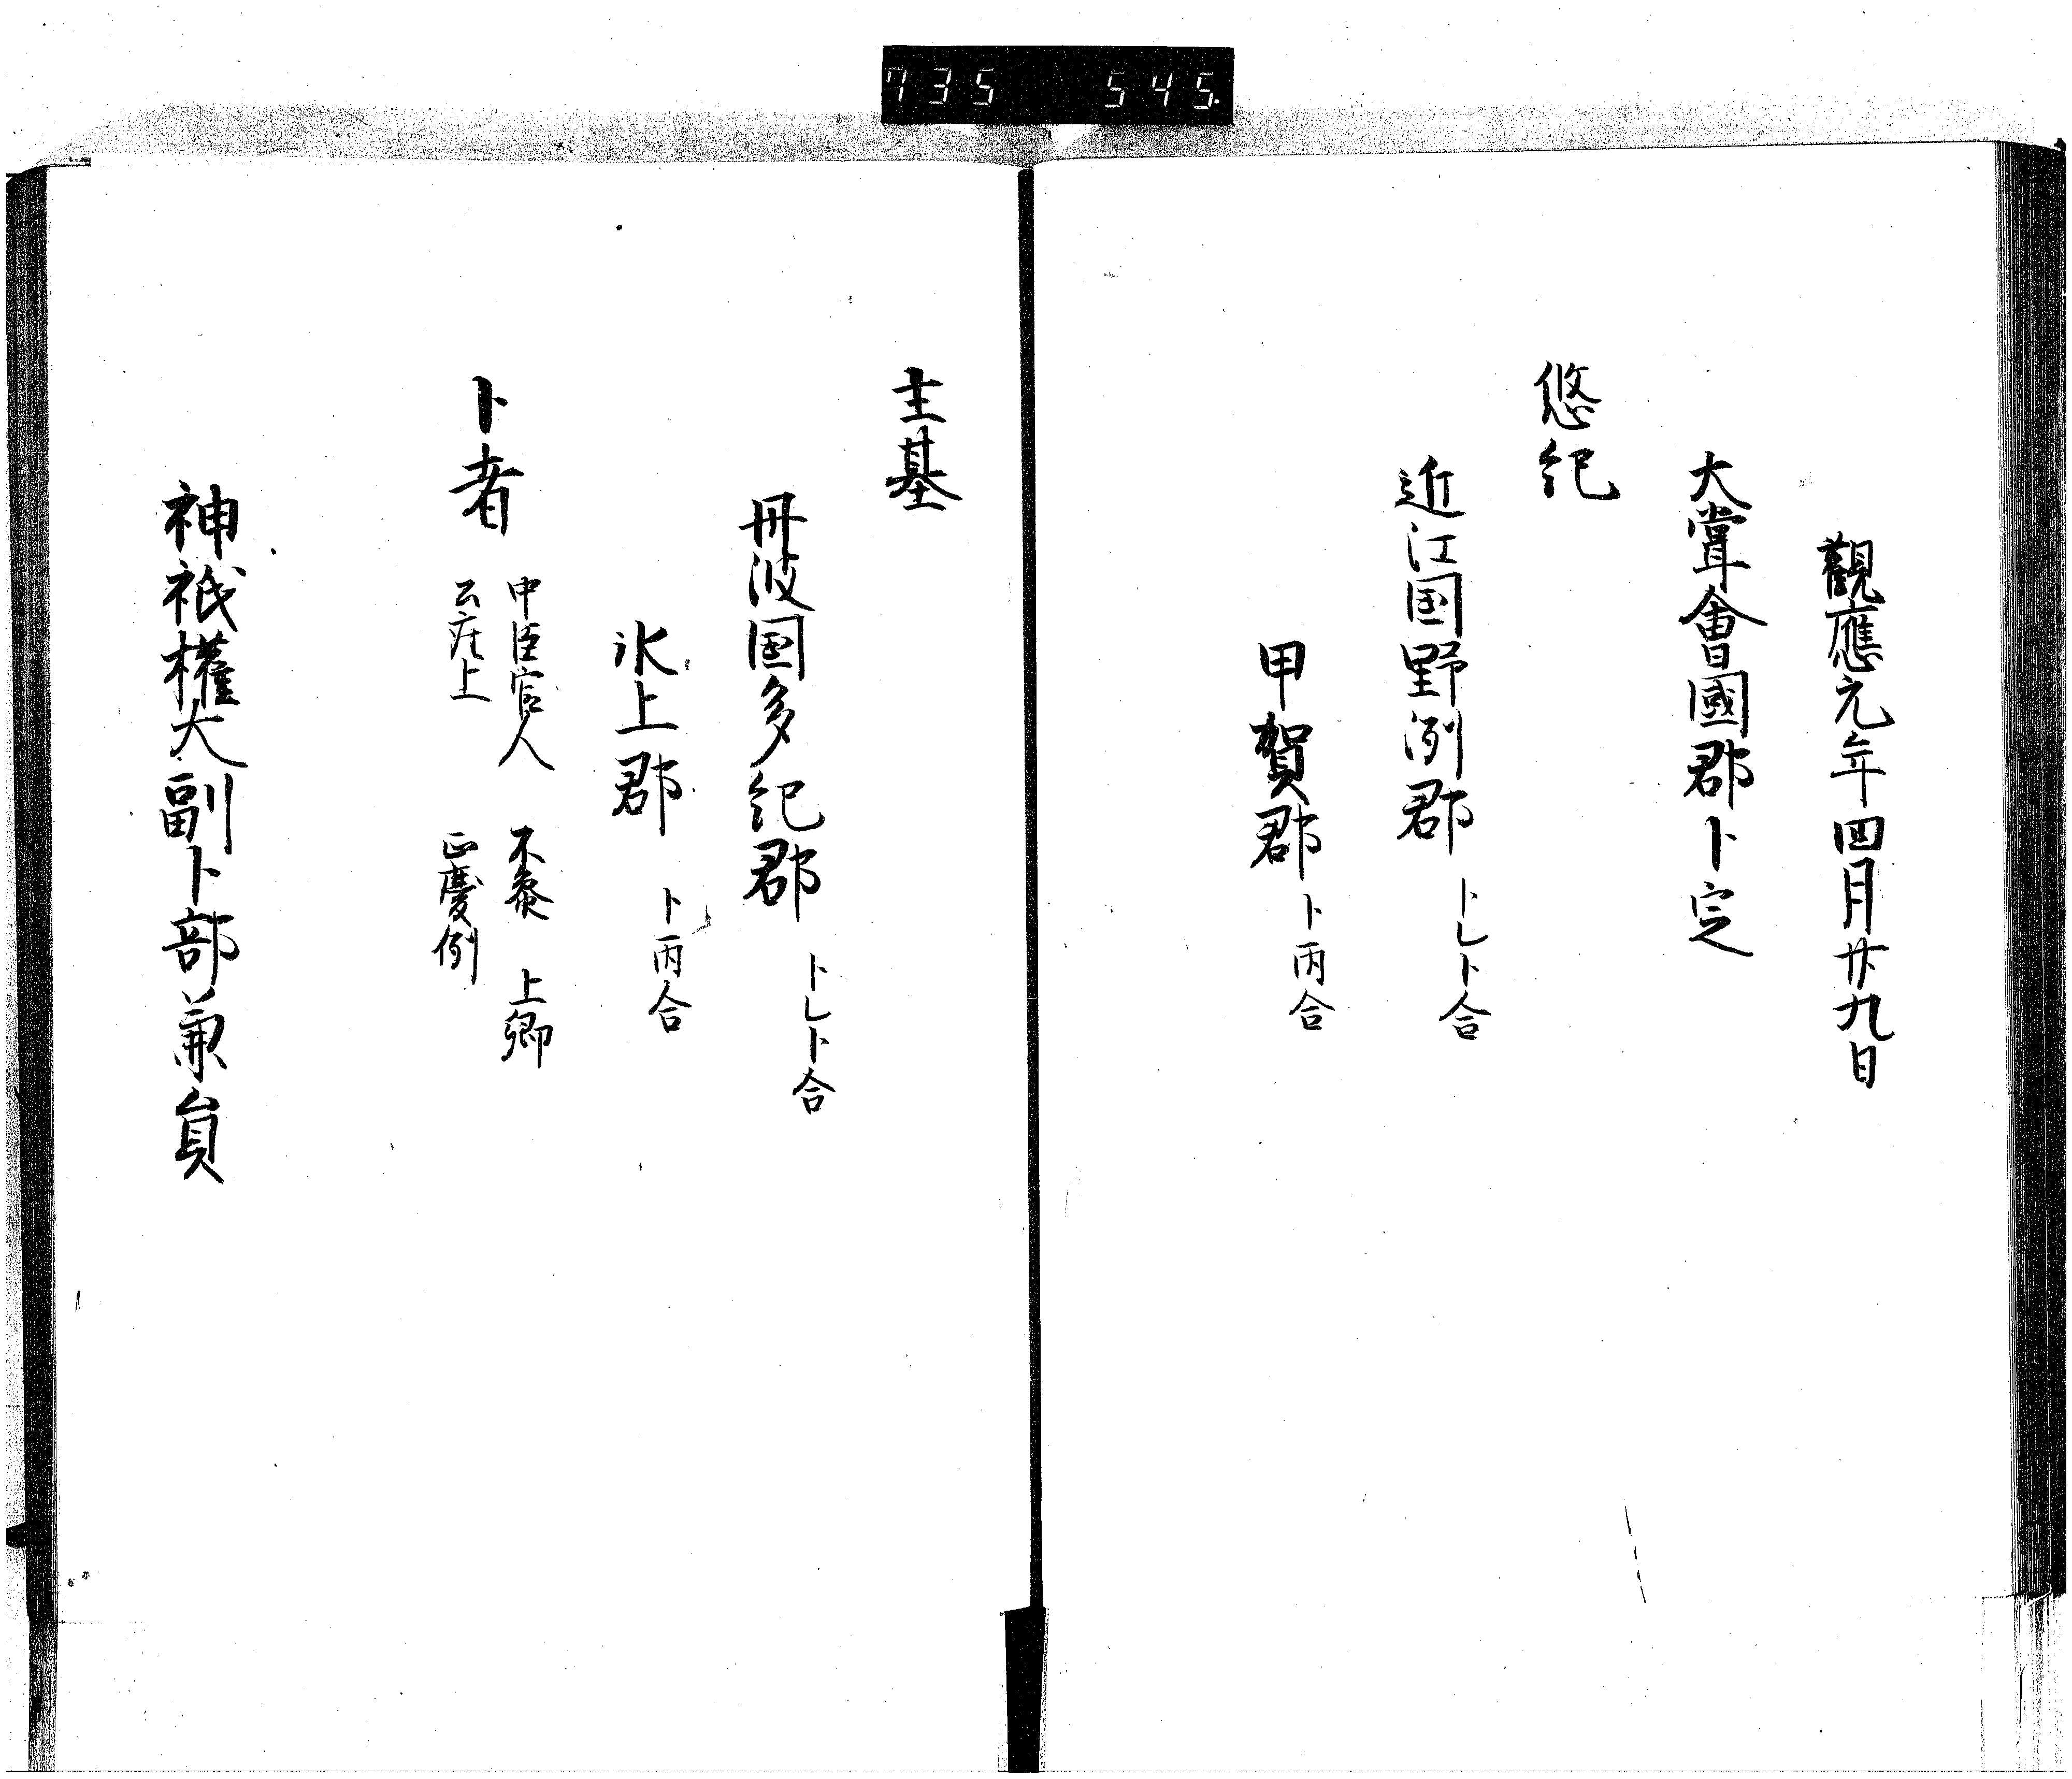 735 545
觀應元年四月廿九日
大甞會國郡卜定
悠紀
近江国野洌郡 卜乚卜合
甲賀郡 卜丙合
主基
丹波国多紀郡 卜乚卜合
氷上郡 卜丙合
卜者 中臣官人 不参 上卿
正慶例
神祇權大副卜部兼員